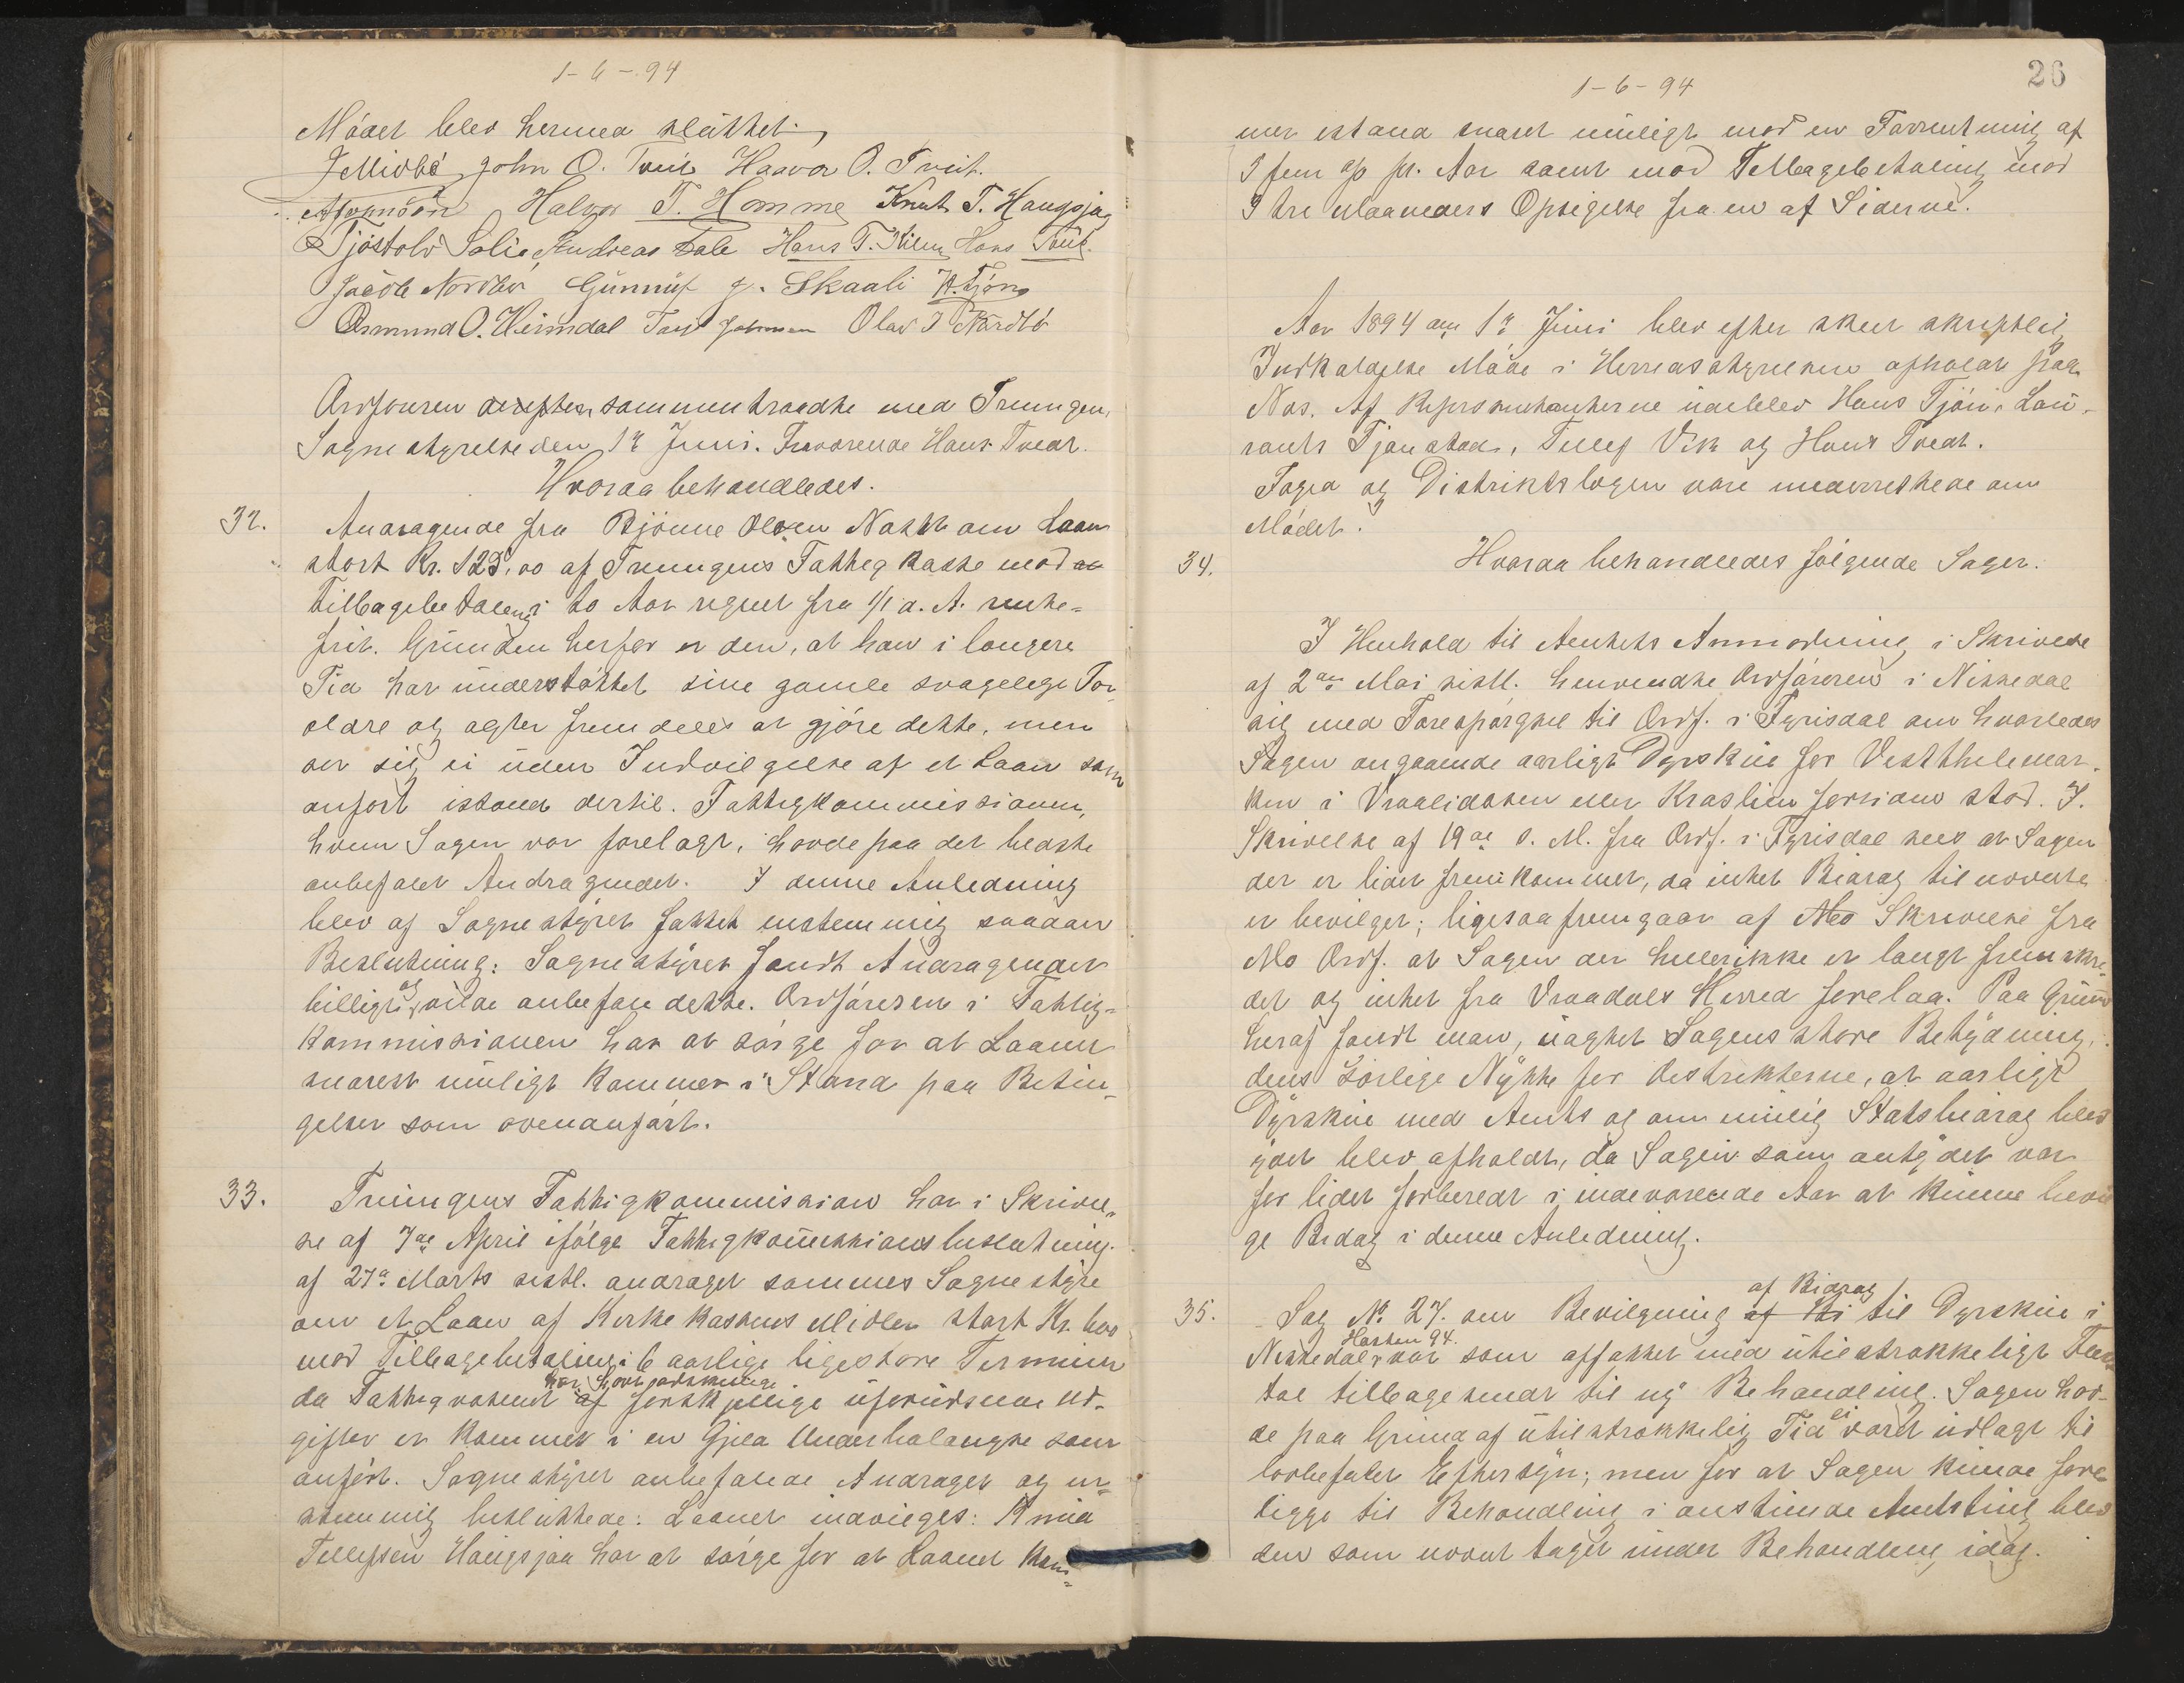 1-6-94
Mødet blev hermed sluttet.
JMidbö John O. Tveit Haavor O. Tveit.
Halvor T. Homme Knut T. Haugsjaa
Tjöstolv Solie Andreas Dale Hans T. Kilen Hans Tveit.
Jacob Nordbö Gunnuf G. Skaali H. Tjönn
Osmund O. Heimdal Olav J Nordbö
Ordføreren derefter sammentraadte med Treungens
Sognestyrelse den 1ste Juni. Fraværende Hans Tvedt.
Hvorda behandledes.
32. Andragende fra Bjønne Olsen Nakk om Laan
stort Kr. 125,00 af Treungens Fattigkasse mod
Tilbagebetaling i to Aar regnet fra 1/1 d. A. rente-
frit. Grunden herfor er den, at han i længere
Tid har understøttet sine gamle svagelige For-
ældre og agter fremdeles at gjøre dette, men
ser sig ei uden Indvilgelse af et Laan som
anført istand dertil. Fattigkommissionen,
hvem Sagen var forelagt, havde paa det bedste
anbefalet Andragendet. I denne Anledning
blev af Sognestyret fattet enstemmig saadan
Beslutning: Sognestyret fandt Andragendet
billigt og vilde anbefale dette. Ordføreren i Fattig-
kommissionen har at sørge for at Laanet
snarest muligt kommer i Stand paa Betin-
gelser som ovenanført.
33. Treungens Fattigkommission har i Skrivel-
se af 7de April ifølge Fattigkommissions beslutning
af 27de Marts sistl. andraget sammes Sognestyre
om et Laan af Kirkekassens Midler stort Kr. 600
mod Tilbagebetaling i 6 aarlige ligestore Terminer
da Fattigvæsenet af forskjellige uforudseede Ud-
gifter er kommet i en Gjeld Underbalangse som
anført. Sognestyret anbefalede Andraget og en-
stemmig besluttede: Laanet indvilges: Knud
Tellefsen Haugsjaa har at sørge for at Laanet kom-
1-6-94
26
mer istand snarest muligt mod en Forrentning af
5 fem % pr. Aar samt mod Tilbagebetaling mod
3 tre Maaneders Opsigelse fra en af Siderne.
Aar 1894 den 1ste Juni blev efter skeet skriftlig
Indkaldelse Møde i Herredsstyrelsen afholdt paa
Nes. Af Repræsentanterne udeblev Hans Tjönn, Lau-
rants Tjønstad, Tellef Vik og Hans Tvedt.
Foged og Distriktslægen vare underrettede om
Mødet.
34. Hvorda behandledes følgende Sager.
I Henhold til Amtets Anmodning i Skrivelse
af 2den Mai sistl. henvendte Ordføreren i Nissedal
sig med Forespørgsel til Ordf. i Fyrisdal om hvorledes
Sagen angaaende aarligt Dyrskue for Vestthelemar-
ken i Vraalidosen eller Kraslien forsiden stod. I
Skrivelse af 19de s. M. fra Ordf. i Fyrisdal sees at Sagen
der er lidet fremkommet, da intet Bidrag til nævnte
er bevilget; ligesaa fremgaar af Skrivelse fra
Mo Ordf. at Sagen der hellerikke er langt fremskre-
det og intet fra Vraadals Herred forelaa. Paa Grund
heraf fandt man, uagtet Sagens store Betydning,
dens særlige Nytte for Distrikterne, at aarligt
Dyrskue med Amts og om mulig Statsbidrag blev
blev afholdt, da Sagen som antydet var
for lidet forberedt i indeværende Aar at kunne bevil
ge Bidag i denne Anledning.
35. Sag No 27. om Bevilgning af Bidrag til Dyrskue i
Nissedal Høsten 94. var som affattet med utilstrækkeligt
tal tilbagesendt til ny Behandling. Sagen hav-
de paa Grund af utilstrækkelig Tid ei vært udlagt til
lovbefalet Eftersyn; men for at Sagen kunde fore-
ligge til Behandling i anstunde Amtsting blev
den som nævnt taget under Behandling idag.